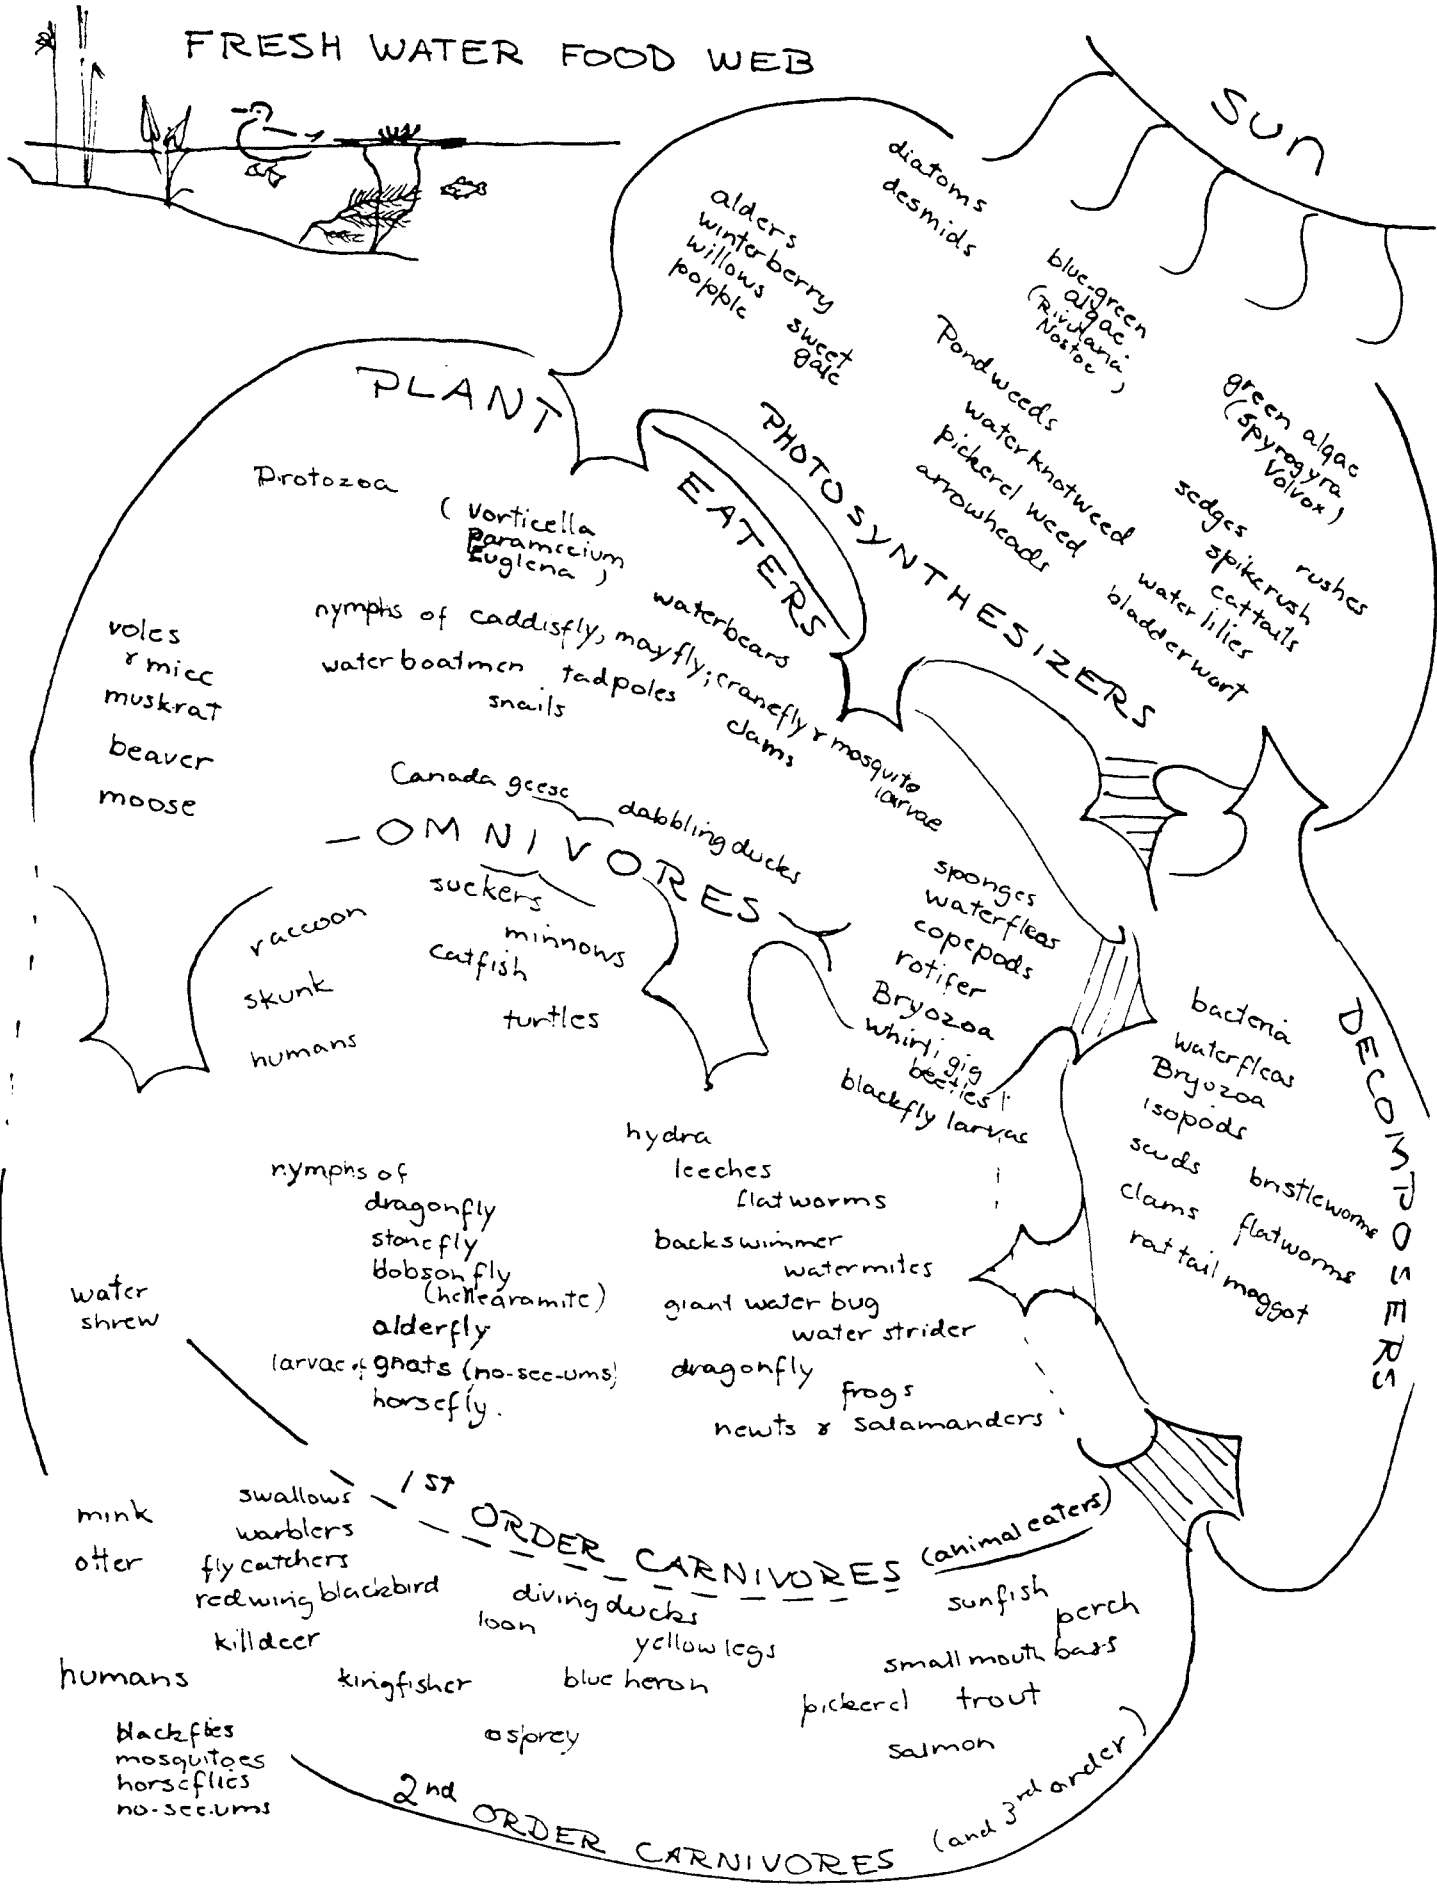 FRESH WATER FOOD WEB
Sun
diatoms
desmids
alders
winterberry
willows
popple
sweet
gale
blue-green
algae
Nostoc)
Pondweeds
water knotweed
pickerel weed
arrowheads
green algae
(spyrogyra
Volvox)
sedges
rushes
spikerush
cattails
water lilies
bladderwort
PHOTOSYNTHESIZERS
PLANT
EATERS
Protozoa
(Vorticella
Paramecium
Euglena)
waterbears
nymphs of caddisfly, mayfly; cranefly & mosquito
larvae
water boatmen
tadpoles
snails
clams
voles
& mice
muskrat
beaver
moose
Canada geese
dabbling ducks
- OMNIVORES -
suckers
minnows
catfish
turtles
raccoon
skunk
humans
sponges
waterfleas
copepods
rotifer
Bryozoa
whirligig
beetles
blackfly larvae
DECOMPOSERS
bacteria
waterfleas
Bryozoa
isopods
scuds
bristleworms
clams
flatworms
rat tail maggot
hydra
leeches
flatworms
backswimmer
watermites
giant water bug
water strider
dragonfly
frogs
newts & salamanders
nymphs of
dragonfly
stonefly
dobsonfly
(hellearamite)
alderfly
larvae of gnats (no-see-ums)
horsefly.
water
shrew
1ST ORDER CARNIVORES (animal eaters)
mink
otter
swallows
warblers
flycatchers
redwing blackbird
killdeer
diving ducks
loon
yellow legs
sunfish
perch
small mouth bass
humans
kingfisher
blue heron
pickerel
trout
osprey
salmon
blackflies
mosquitoes
horseflies
no-see-ums
2nd ORDER CARNIVORES (and 3rd order)